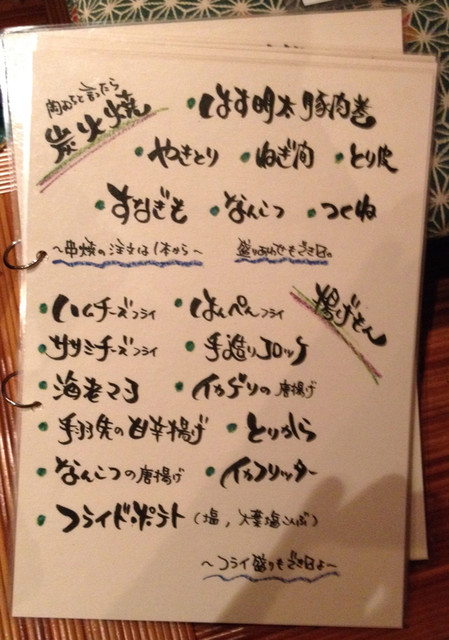 陶ぬちと言ったら
炭火焼
・はす明太豚肉巻
・やきとり ・ねぎ間 ・とり皮
・すなぎも ・なんこつ ・つくね
〜串焼の注文は1本から〜 盛りあわせもでき〼。
揚げもん
・ハムチーズフライ ・はんぺんフライ
・ササミチーズフライ ・手造りコロッケ
・海老マヨ ・イカゲソの唐揚げ
・手羽先の甘辛揚げ ・とりから
・なんこつの唐揚げ ・イカフリッター
・フライドポテト(塩,大葉塩こんぶ)
〜フライ盛りもでき〼よ〜